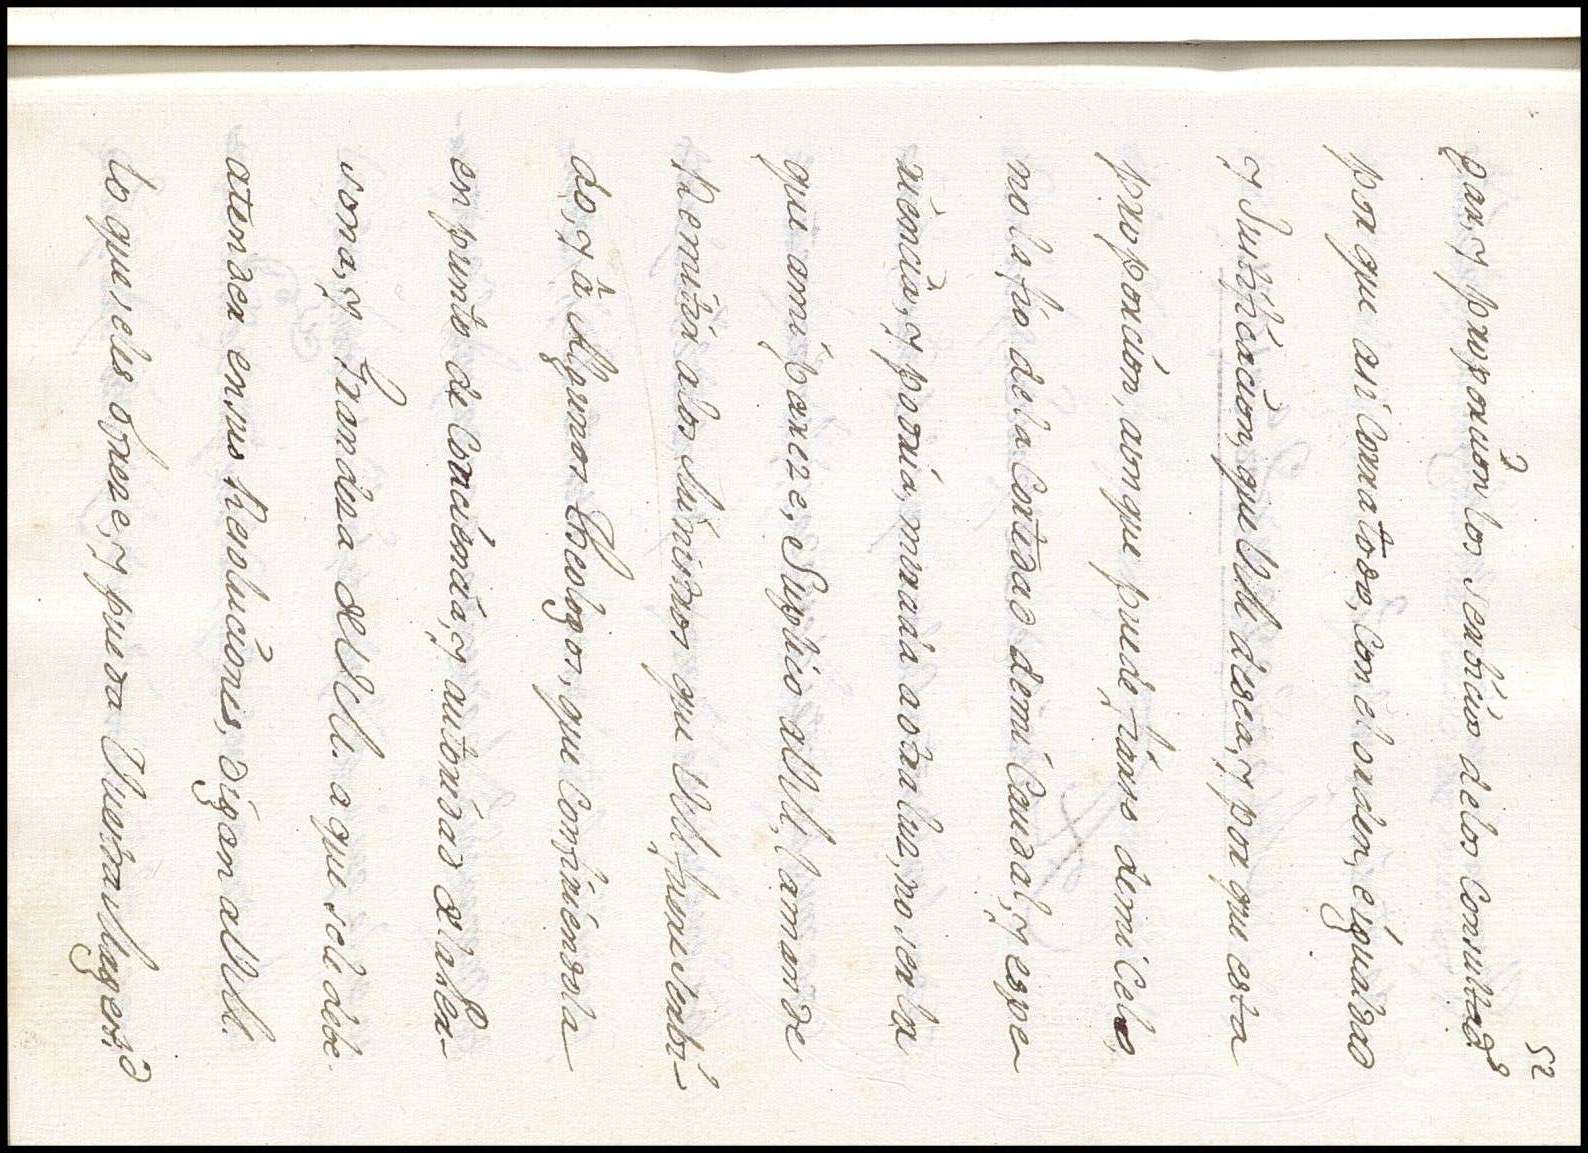 52
gar, y proporcion los serbicio de los Consultad.os
por que asi Corra todo, Con el orden, e igualdad
y Justificacion, que VM. desea, y por que esta
proporcion, aonque puede fiarse de mi Celo,
no la fio de la Cortedad de mi Caudal, y espe-
riencia, y podria, mirada a otra luz, no ser la
que a mi pareze, Suplico a VM. la mande
Remitir a los Ministros que VM. fuere servi-
do, y à Algunos theologos, que Confiriendola
en punto de Conciencia, y autoridad de la Per-
sona, y Grandeza de VM. a que se le debe
atender en sus Resoluciones, digan a VM.
lo que se les ofreze, y pueda Vuestra Magestd